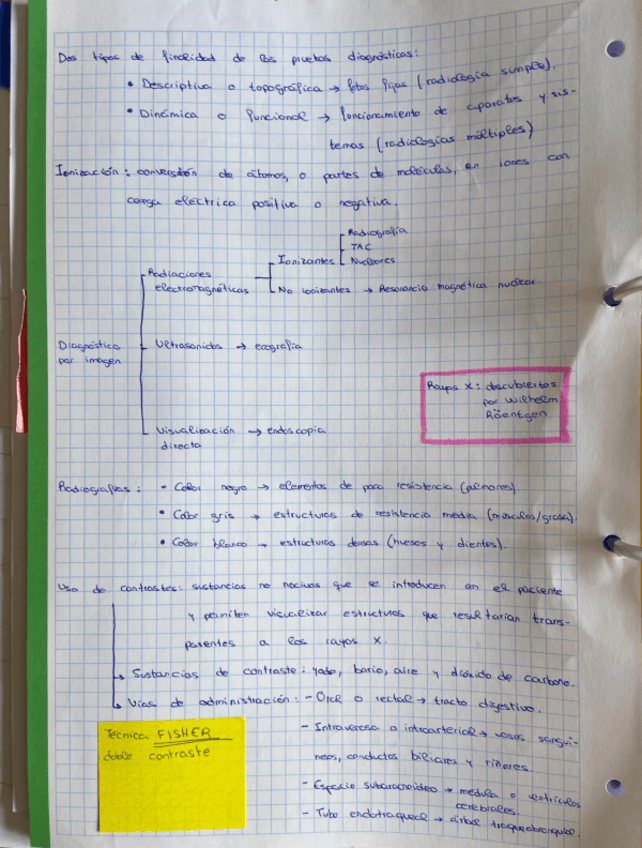 Dos tipos de finalidad de las pruebas diagnósticas:
• Descriptiva o topográfica → fotos fijas (radiología simple).
• Dinámica o funcional → funcionamiento de aparatos y sis-
temas (radiologías múltiples)
Ionización: conversión de átomos, o partes de moléculas, en iones con
carga eléctrica positiva o negativa.
Radiografía
TAC
Ionizantes
Nucleares
Radiaciones
electromagnéticas
No ionizantes → Resonancia magnética nuclear
Diagnóstico
por imagen
Ultrasonidos → ecografía
Rayos X: descubiertos
por Wilhelm
Röentgen
Visualización → endoscopia
directa
Radiografías: • Color negro → elementos de poca resistencia (pulmones).
• Color gris → estructuras de resistencia media (músculos/grasa).
• Color blanco → estructuras densas (huesos y dientes).
Uso de contrastes: sustancias no nocivas que se introducen en el paciente
y permiten visualizar estructuras que resultarían trans-
parentes a los rayos X.
↳ Sustancias de contraste: yodo, bario, aire y dióxido de carbono.
↳ Vías de administración: - Oral o rectal → tracto digestivo.
- Intravenosa o intraarterial → vasos sanguí-
neos, conductos biliares y riñones.
- Espacio subaracnoideo → médula o ventrículos
cerebrales.
- Tubo endotraqueal → árbol traqueobronquial.
Técnica FISHER
doble contraste